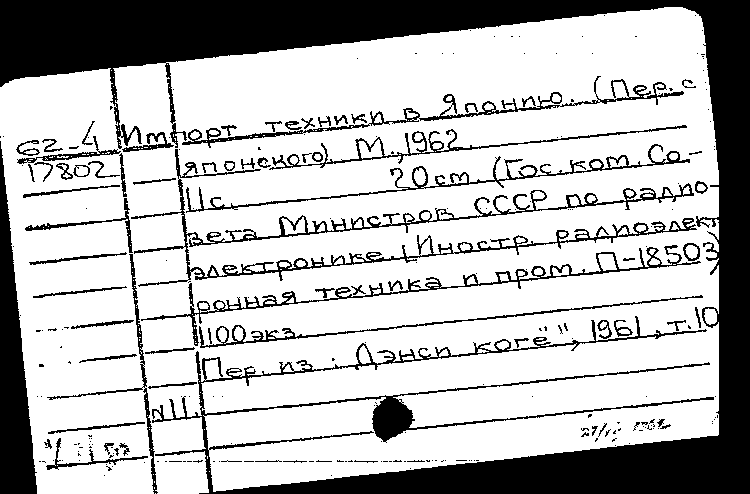 62-4 Импорт техники в Японию. (Пер. с
17802 японского). М., 1962.
11с. 20 см. (Гос. ком. Со-
вета Министров СССР по радио-
электронике. [Иностр. радиоэлект
ронная техника и пром. П-18503)
1100 экз.
Пер. из: „Дэнси когё", 1961, т. 10
N11.